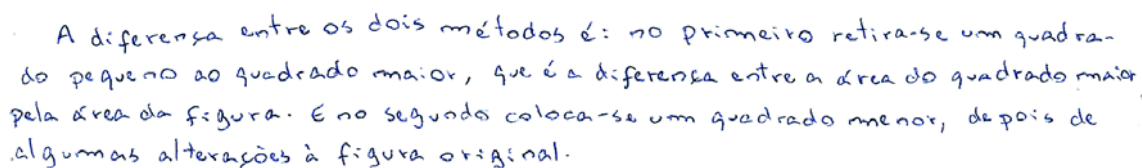 A diferença entre os dois métodos é: no primeiro retira-se um quadra-
do pequeno ao quadrado maior, que é a diferença entre a área do quadrado maior
pela área da figura. E no segundo coloca-se um quadrado menor, depois de
algumas alterações à figura original.